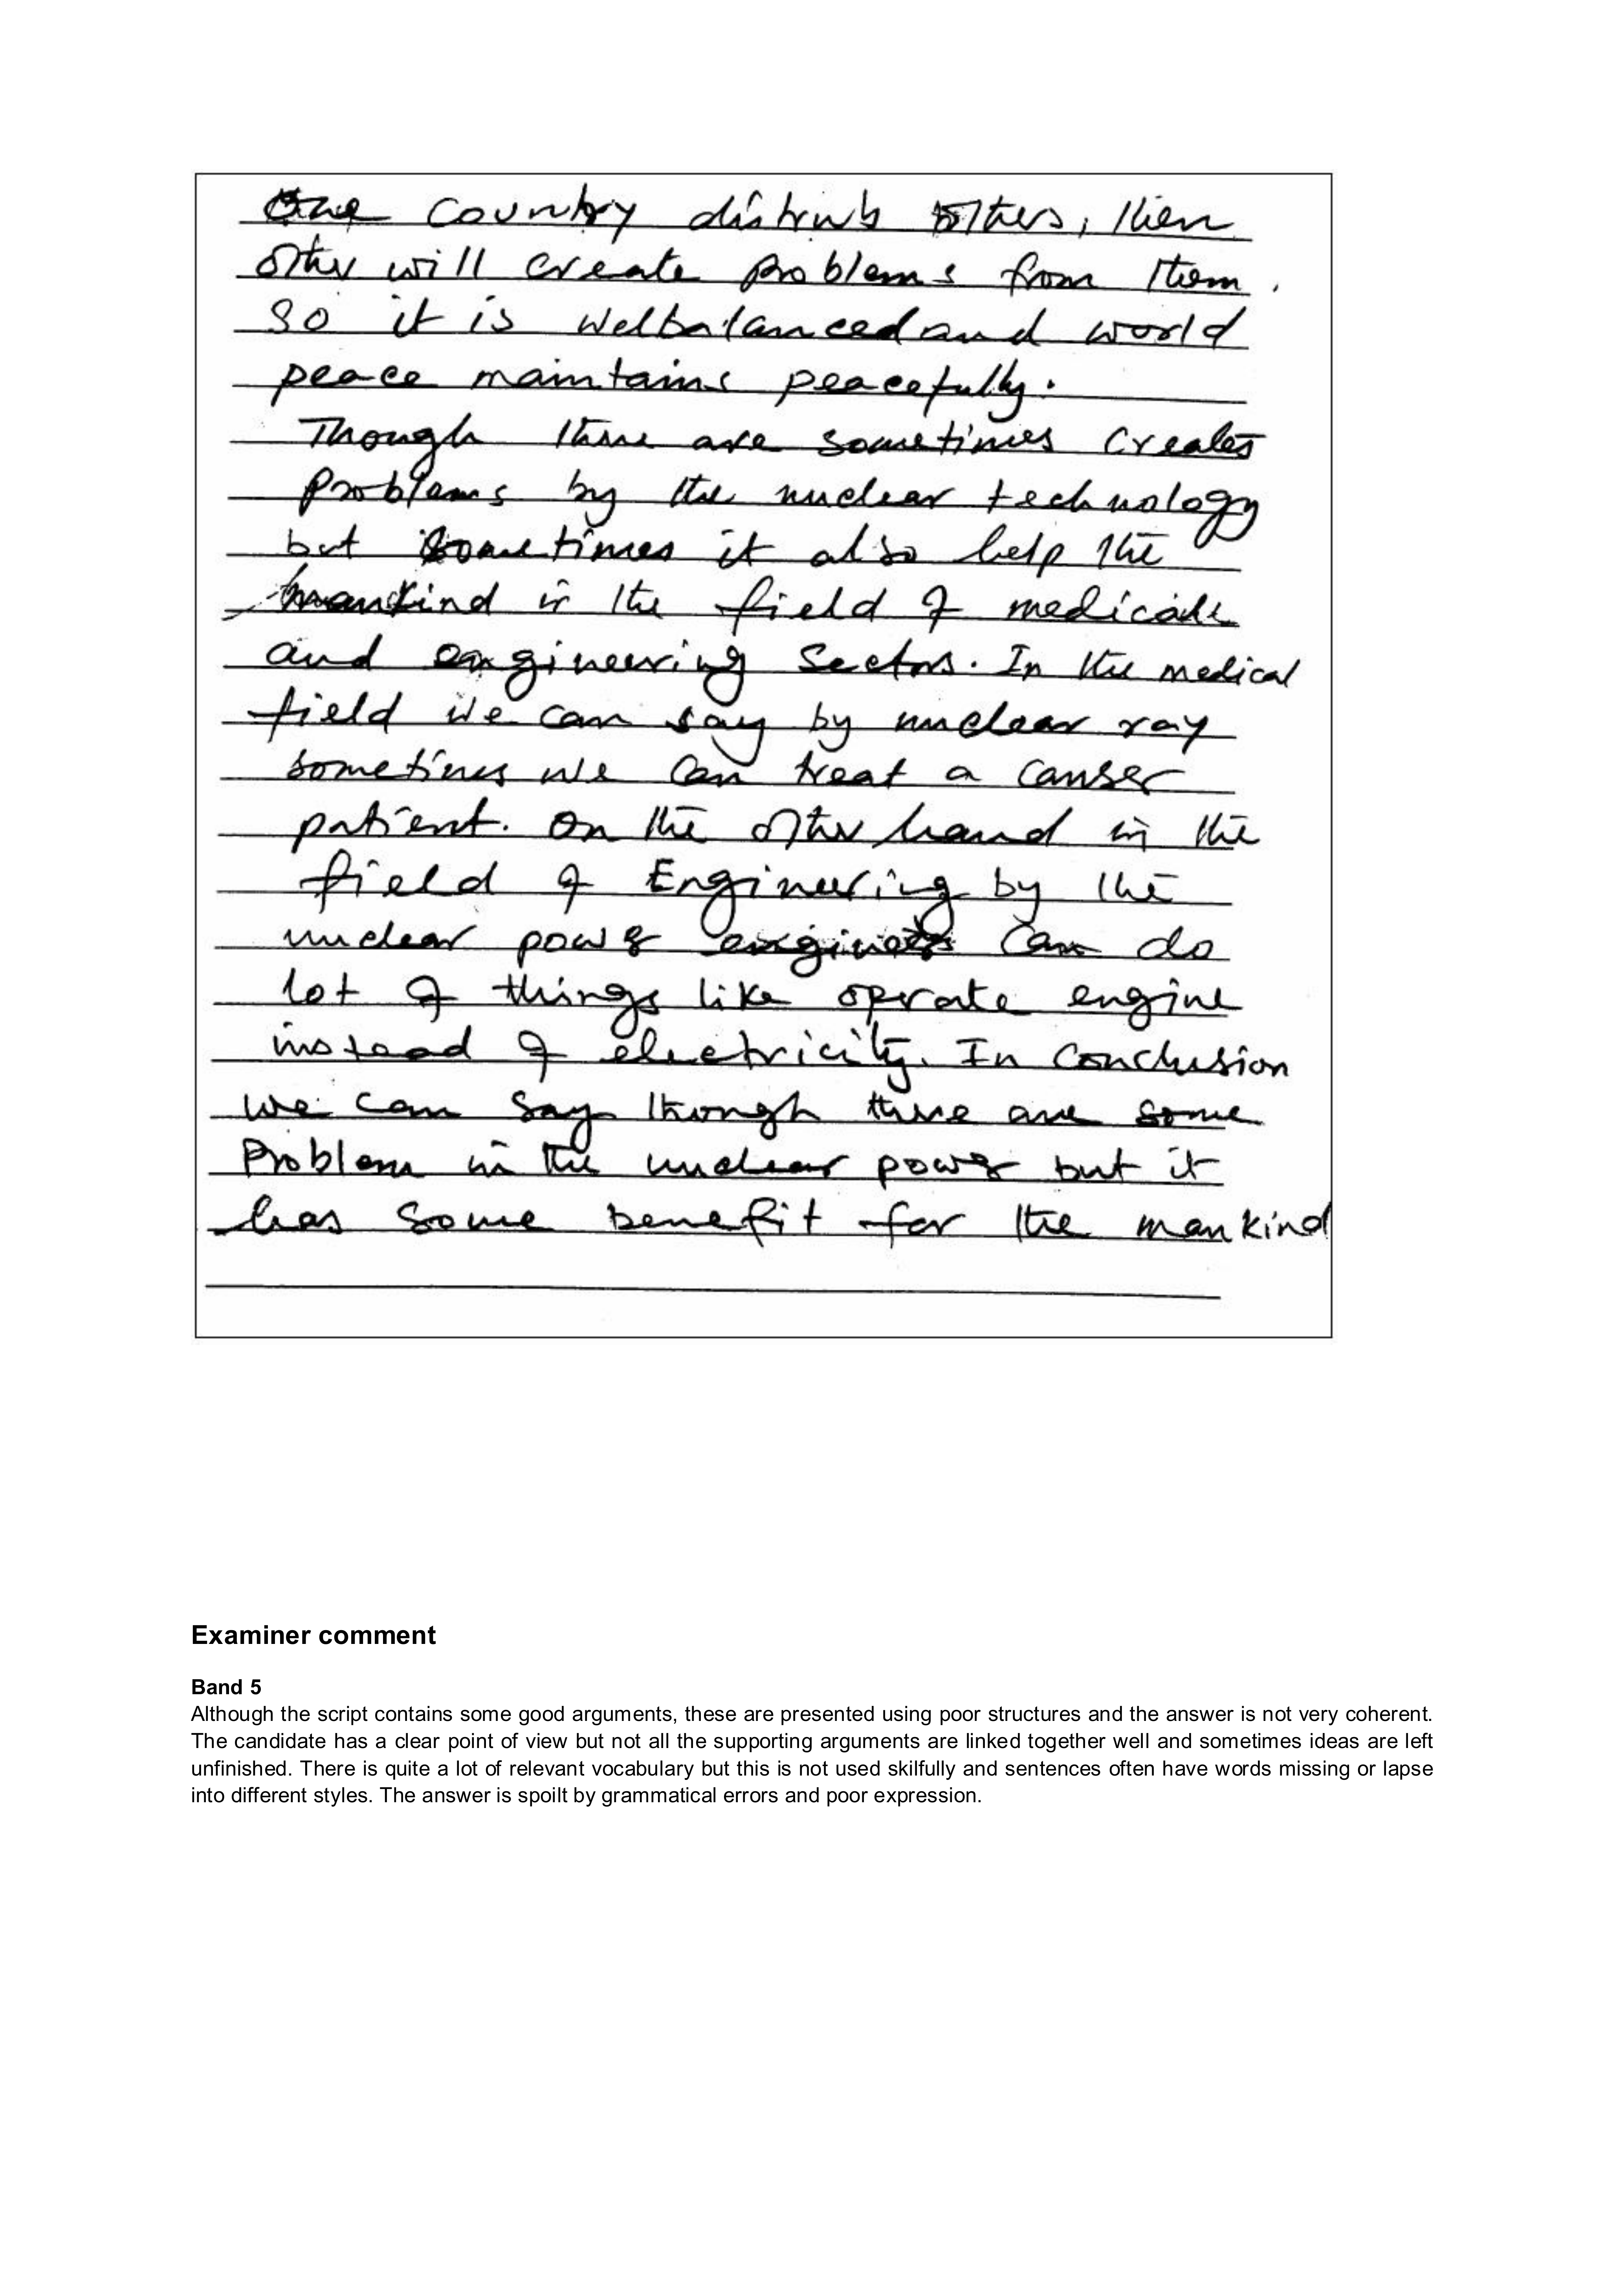 One country distrub others, then
other will create problems from them.
So it is welbalanced and world
peace maintains peacefully.
Though there are sometimes creates
problems by the nuclear technology
but sometimes it also help the
mankind in the field of medicale
and engineering sectors. In the medical
field we can say by nuclear ray
sometimes we can treat a canser
patient. On the other hand in the
field of Engineering by the
nuclear power can do
lot of things like oprate engine
instead of electricity. In conclusion
we can say though there are some
Problem in the nuclear power but it
has some benefit for the mankind
Examiner comment
Band 5
Although the script contains some good arguments, these are presented using poor structures and the answer is not very coherent.
The candidate has a clear point of view but not all the supporting arguments are linked together well and sometimes ideas are left
unfinished. There is quite a lot of relevant vocabulary but this is not used skilfully and sentences often have words missing or lapse
into different styles. The answer is spoilt by grammatical errors and poor expression.